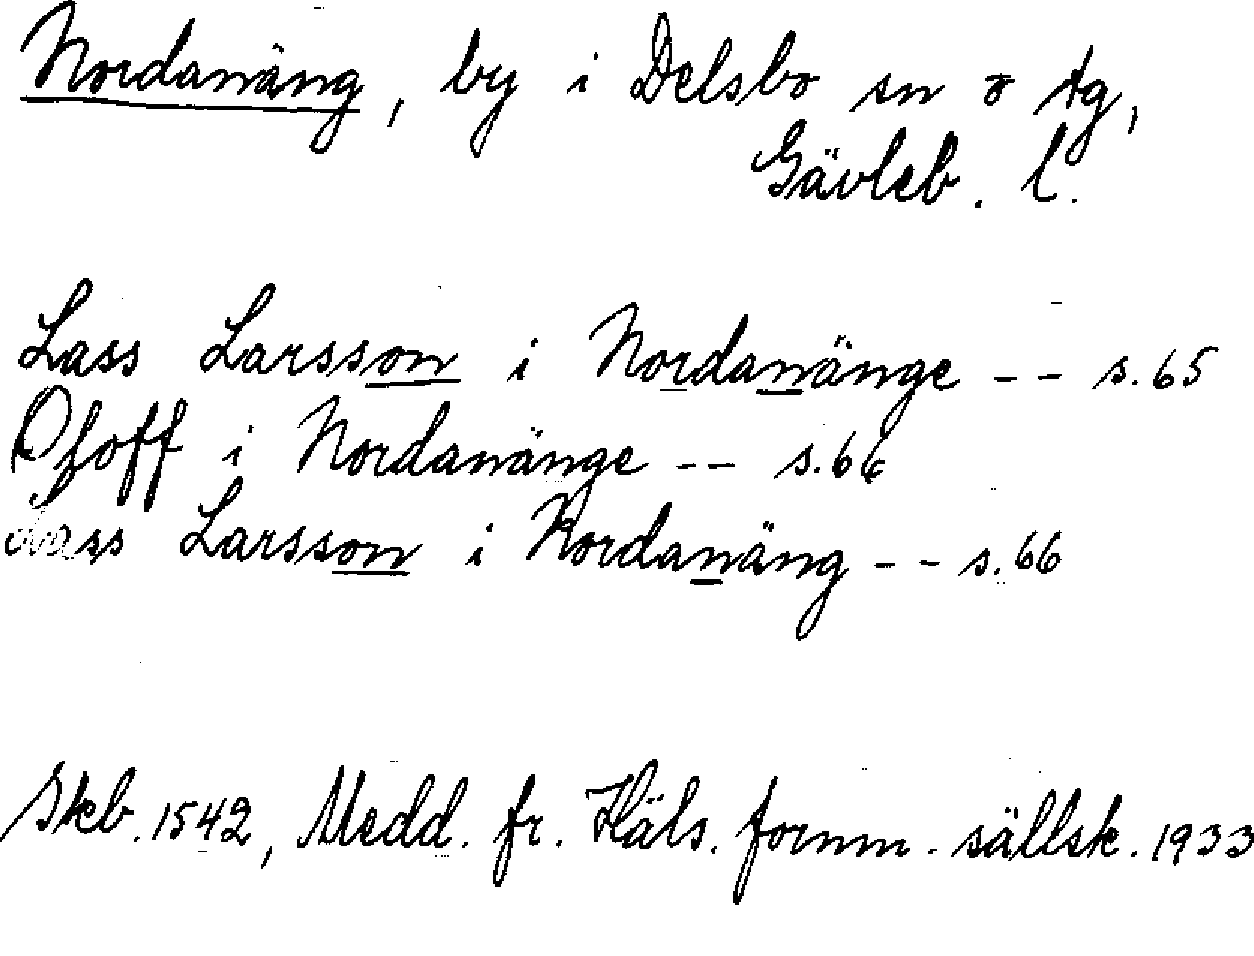 Nordanäng, by i Delsbo sn o tg,
Gävleb. l.
Lass Larsson i Nordanänge -- s. 65
Oloff i Nordanänge -- s. 66
Lass Larsson i Nordanäng -- s. 66
Skeb. 1542, Medd. fr. Häls. fornm. sällsk. 1933